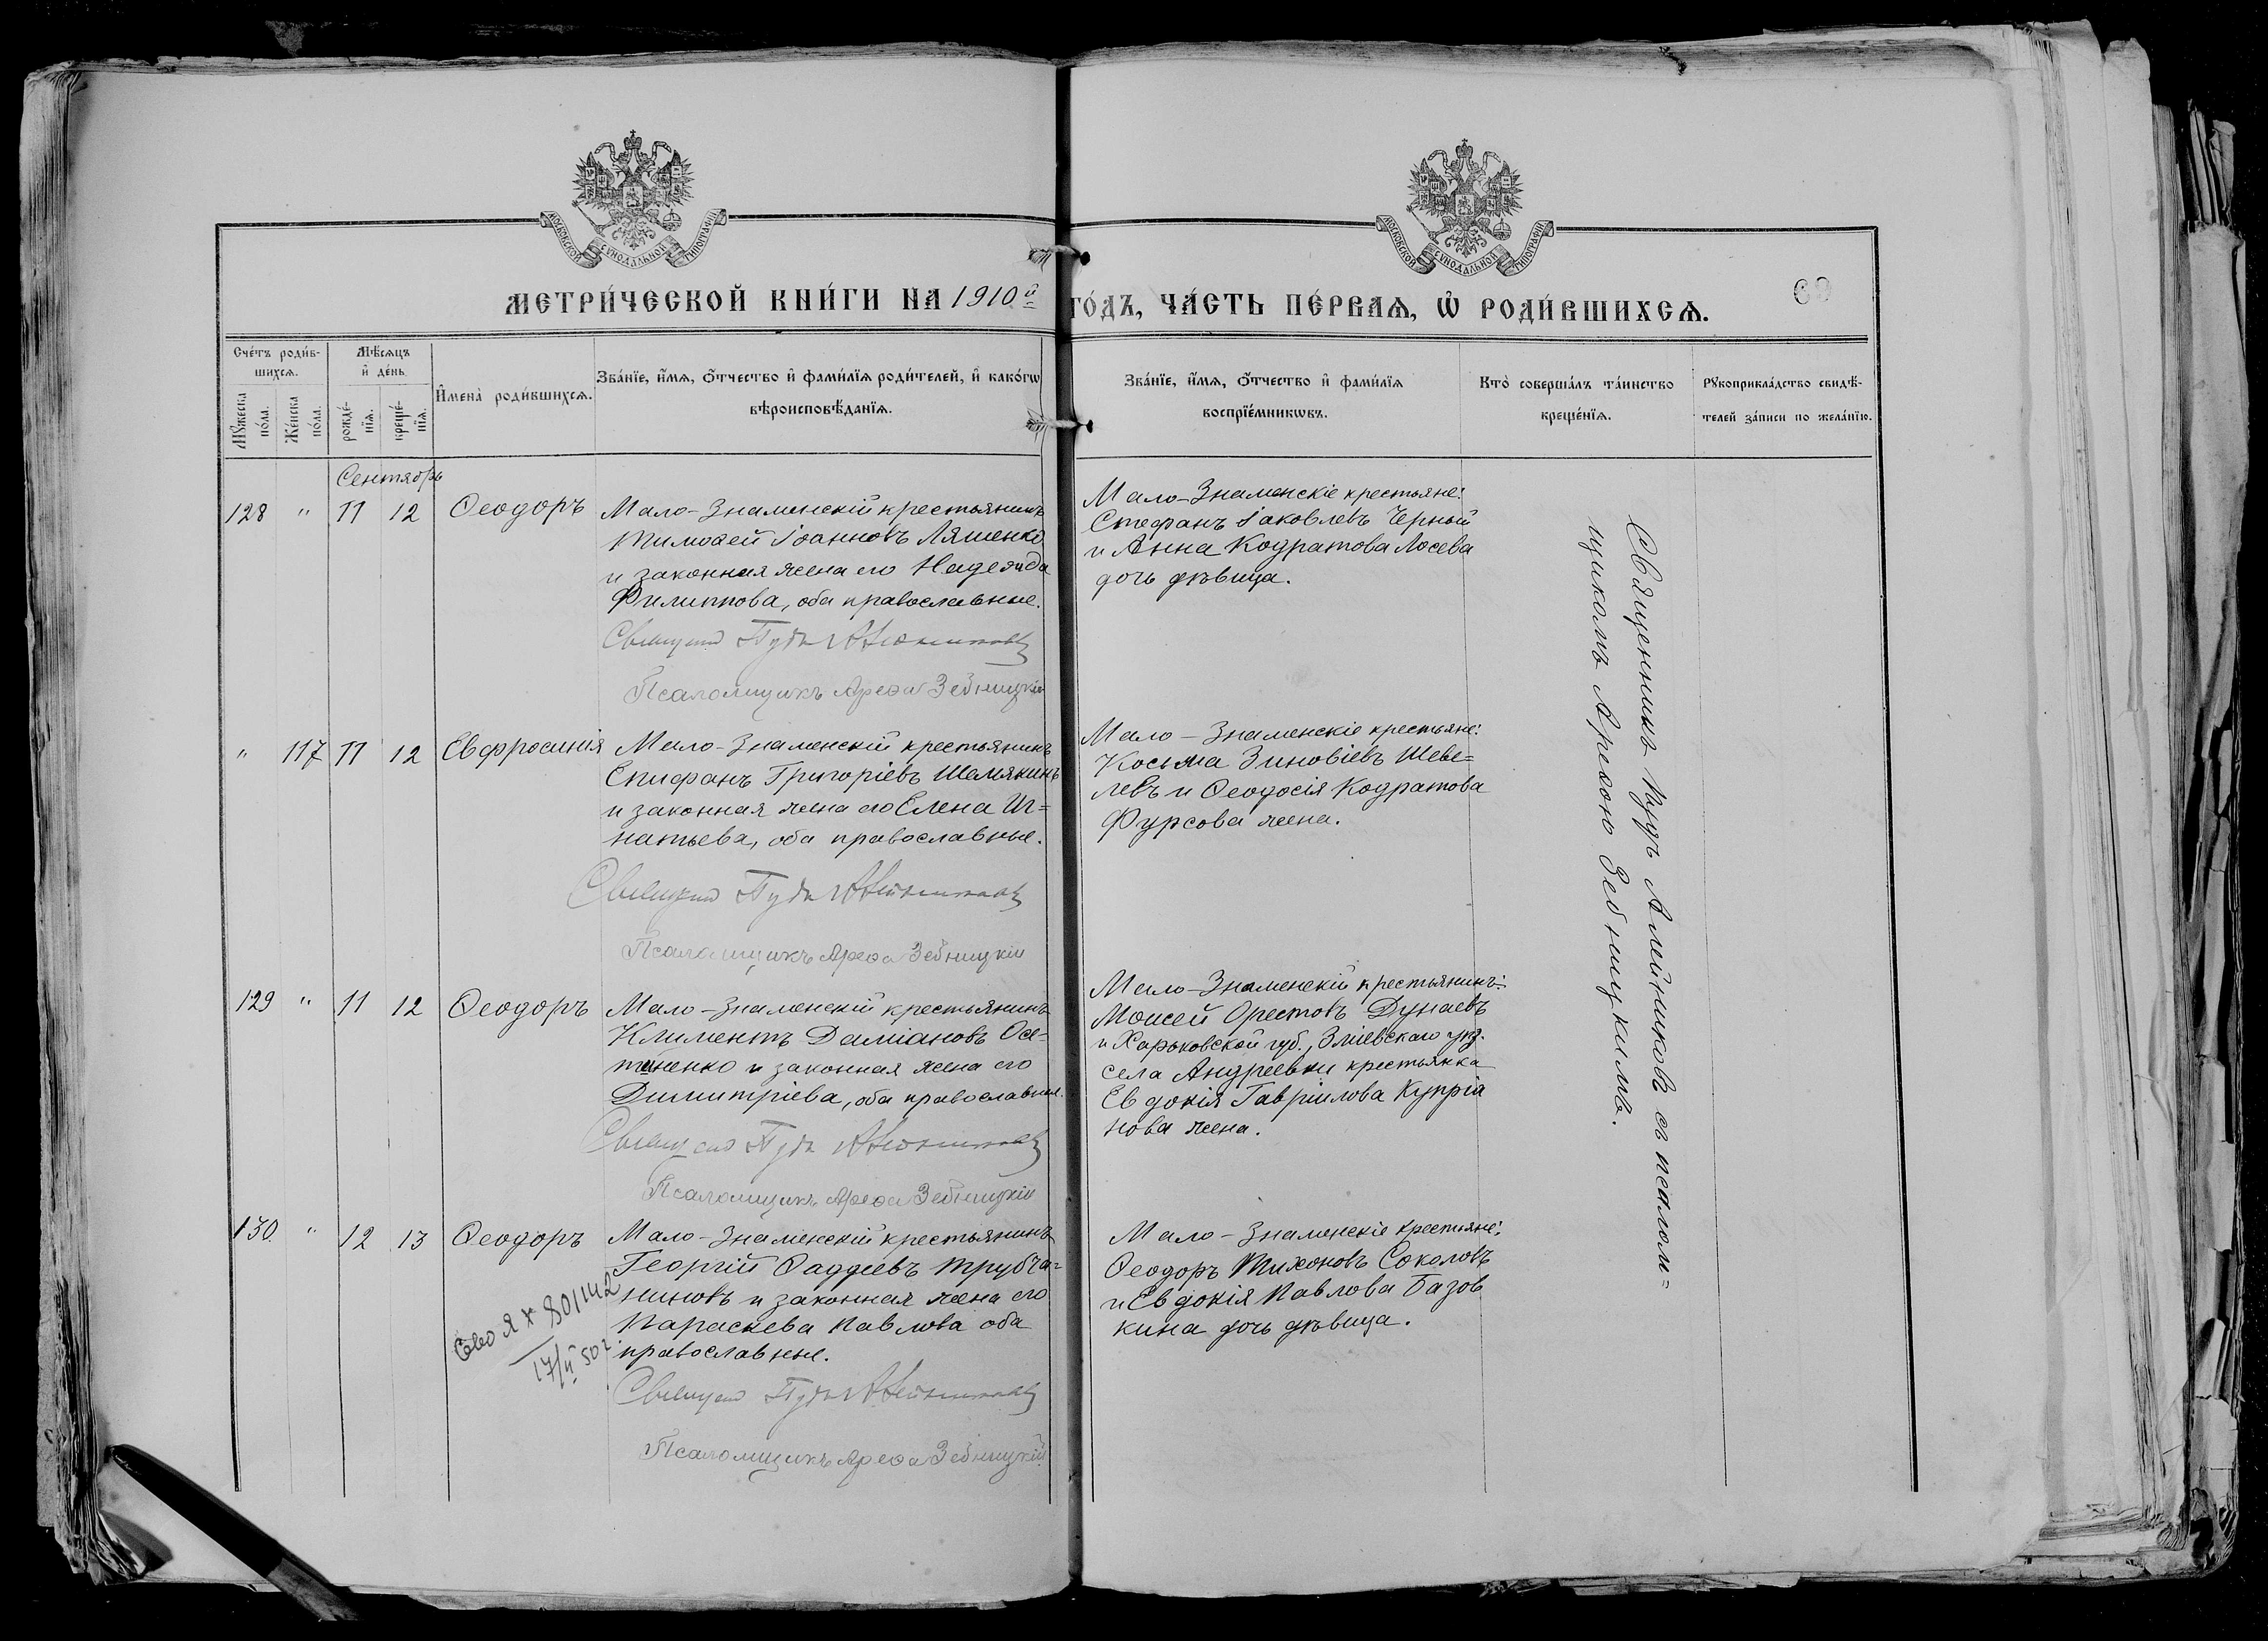 МОСКОВСКОЙ СѴНОДАЛЬНОЙ ТИПОГРАФІИ
МОСКОВСКОЙ СѴНОДАЛЬНОЙ ТИПОГРАФІИ
МЕТРИ́ЧЕСКОЙ КНИ́ГИ НА 1910й
ГО́ДЪ, ЧА́СТЬ ПЕ́РВАѦ, Ѡ҆ РОДИ́ВШИХСѦ.
Сче́тъ роди́в-
шихсѧ.
Мѣ́сѧцъ
и҆ де́нь.
Мꙋ́жеска
по́ла.
Же́нска
по́ла.
рожде́-
нїѧ.
креще́-
нїѧ.
И҆мена̀ роди́вшихсѧ.
Зва́нїе, и҆́мѧ, ѻ҆́тчество и҆ фами́лїѧ роди́телей, и҆ како́гѡ
вѣроисповѣ́данїѧ.
Зва́нїе, и҆́мѧ, ѻ҆́тчество и҆ фами́лїѧ
воспрїе́мникѡвъ.
Кто̀ соверша́лъ та́инство
креще́нїѧ.
Рꙋкоприкла́дство свидѣ́-
телей за́писи по жела́нїю.
Сентябрь
128 " 11 12 Ѳеодоръ
Мало-Знаменскій крестьянинъ
Тимоѳей Іоанновъ Ляшенко
и законная жена его Надежда
Филиппова, оба православные.
Священ Пудъ Алейниковъ
Псаломщикъ Ареѳа Зебницкій
Мало-Знаменскіе крестьяне:
Стефанъ Іаковлевъ Черный
и Анна Кодратова Лосева
дочь дѣвица.
" 117 11 12 Евфросинія
Мало-Знаменскій крестьянинъ
Епифанъ Григоріевъ Шемякинъ
и законная жена его Елена Иг=
натьева, оба православные.
Священ Пудъ Алейниковъ
Псаломщикъ Ареѳа Зебницкій
Мало-Знаменскіе крестьяне:
Косьма Зиновіевъ Шеве=
левъ и Ѳеодосія Кодратова
Фурсова жена.
129 " 11 12 Ѳеодоръ
Мало-Знаменскій крестьянинъ
Климентъ Даміановъ Осе-
тиненко и законная жена его
Димитріева, оба православныя.
Священ Пудъ Алейниковъ
Псаломщикъ Ареѳа Зебницкій
Мало-Знаменскій крестьянинъ:
Моисей Орестовъ Дунаевъ
и Харьковской губ., Зміевскаго уѣз.
села Андреевки крестьянка
Евдокія Гавріилова Купрія
нова жена.
130 " 12 13 Ѳеодоръ
Мало-Знаменскій крестьянинъ
Георгій Ѳаддеевъ Трубча=
ниновъ и законная жена его
Параскева Павлова оба
православные.
Священ Пудъ Алейниковъ
Псаломщикъ Ареѳа Зебницкій
Мало-Знаменскіе крестьяне:
Ѳеодоръ Тихоновъ Соколовъ
и Евдокія Павлова Базов
кина дочь дѣвица.
17/II 50 г
Священникъ Пудъ Алейниковъ съ псалом=
щикомъ Ареѳою Зебницкимъ.